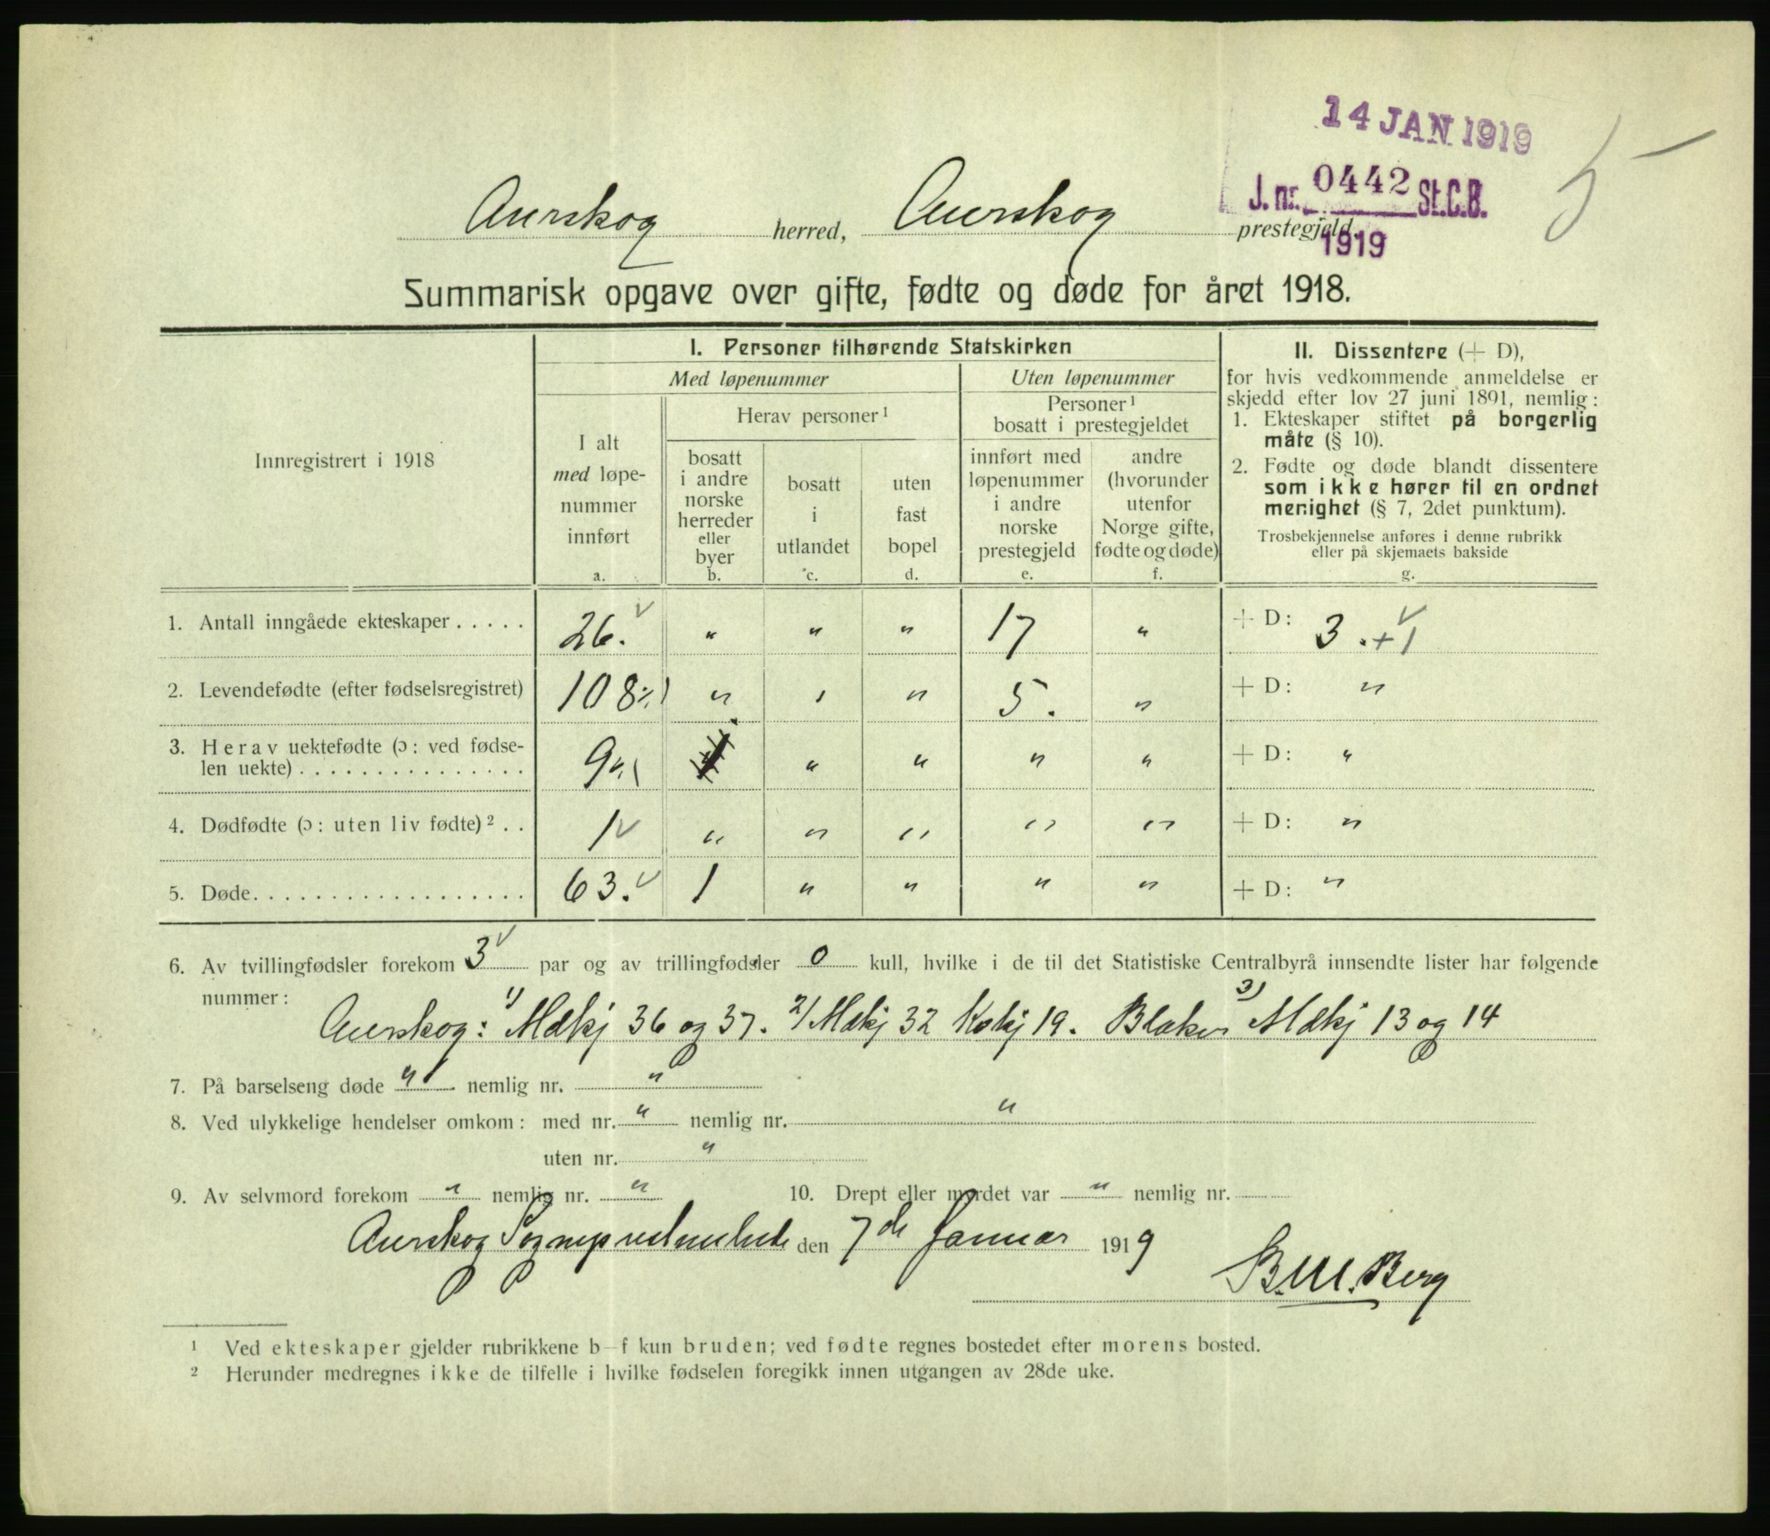 14 JAN 1919
J. nr. 0442 St.C.B.
1919
5
Aurskog herred, Aurskog prestegjeld.
Summarisk opgave over gifte, fødte og døde for året 1918.
Innregistrert i 1918
I. Personer tilhørende Statskirken
Med løpenummer
Uten løpenummer
I alt
med løpe-
nummer
innført
a.
Herav personer ¹
bosatt
i andre
norske
herreder
eller
byer
b.
bosatt
i
utlandet
c.
uten
fast
bopel
d.
Personer ¹
bosatt i prestegjeldet
innført med
løpenummer
i andre
norske
prestegjeld
e.
andre
(hvorunder
utenfor
Norge gifte,
fødte og døde)
f.
II. Dissentere (+ D),
for hvis vedkommende anmeldelse er
skjedd efter lov 27 juni 1891, nemlig:
1. Ekteskaper stiftet på borgerlig
måte (§ 10).
2. Fødte og døde blandt dissentere
som ikke hører til en ordnet
menighet (§ 7, 2det punktum).
Trosbekjennelse anføres i denne rubrikk
eller på skjemaets bakside
g.
1. Antall inngåede ekteskaper . . . . . 26. " " " 17 " + D: 3 . + 1
2. Levendefødte (efter fødselsregistret) 108 " " " 5. " + D: "
3. Herav uektefødte (ɔ: ved fødse-
len uekte) . . . . . . . . . . . . . . . 9 " " " " + D: "
4. Dødfødte (ɔ: uten liv fødte) ² . . 1 " " " " " + D: "
5. Døde. . . . . . . . . . . . . . . . . . 63. 1 " " " " + D: "
6. Av tvillingfødsler forekom 3 par og av trillingfødsler 0 kull, hvilke i de til det Statistiske Centralbyrå innsendte lister har følgende
nummer:
Aurskog: 1) Mlkj 36 og 37. 2) Mlkj 32 Kvkj 19. Blaker 3) Mlkj 13 og 14
7. På barselseng døde " nemlig nr. "
8. Ved ulykkelige hendelser omkom: med nr. " nemlig nr. "
uten nr. "
9. Av selvmord forekom " nemlig nr. " 10. Drept eller mørdet var " nemlig nr.
Aurskog den 7de Januar 1919
B. M. Berg
¹ Ved ekteskaper gjelder rubrikkene b–f kun bruden; ved fødte regnes bostedet efter morens bosted.
² Herunder medregnes ikke de tilfelle i hvilke fødselen foregikk innen utgangen av 28de uke.